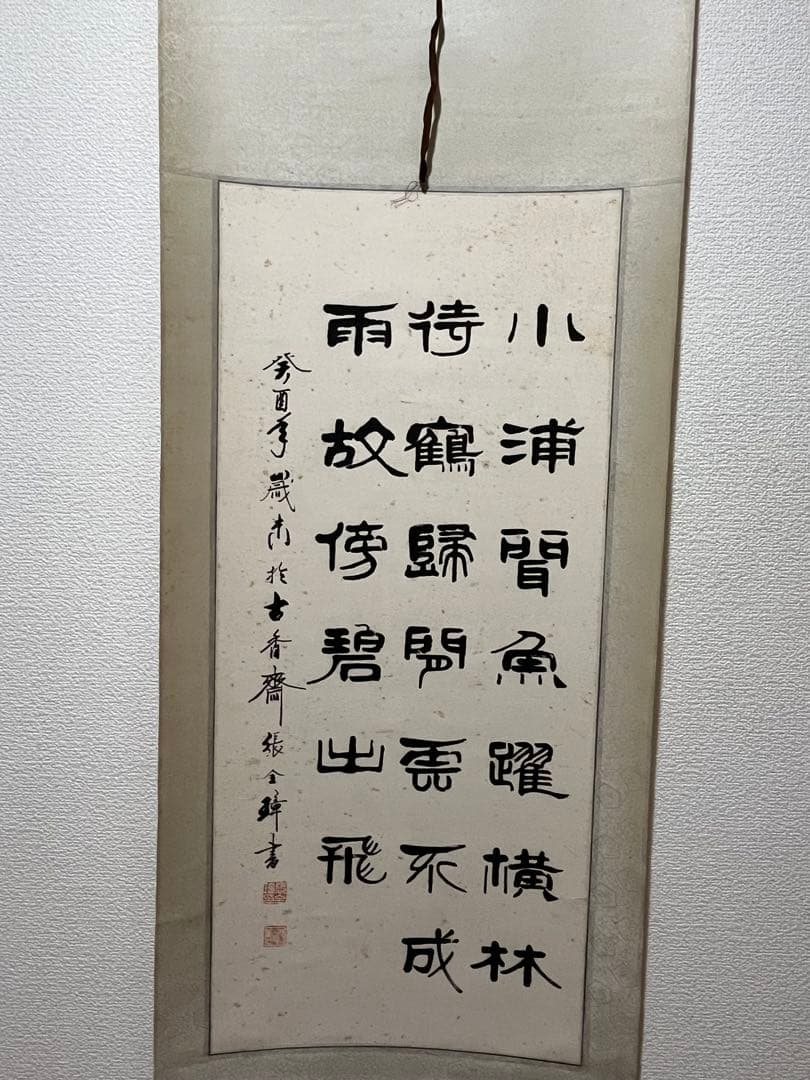 小浦聞魚躍橫林
待鶴歸閒雲不成
雨故傍碧山飛
癸酉年歲末於古香齋張全璋書